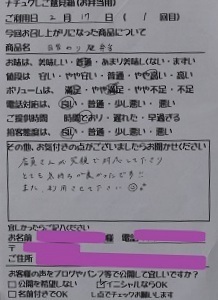 ナチュクしご意見箱(お弁当用)
ご利用日 2月 17日 ( 1回目)
今回お召し上がりになった商品について
商品名 日替のり弁当
お味は、美味しい・普・あまり美味しくない・まずい
値段は 安い・やや安い・普通・やや高い・高い
ボリュームは 満足・やや満足・普通・やや不満・不満
電話対応は、良い・普通・少し悪い・悪い
ご提供時間 時間どおり・遅れた・早過ぎる
接客態度は、良い・普通・少し悪い・悪い
その他、お気付きの点がございましたらお聞かせください
店員さんが笑顔で対応して下さり
とても気持ちが良かったです!!
また、利用させて下さい
宜しかったらご記入ください
お名前 様 電話
〒
ご住所
お客様の声をブログやパンフ等で公開して宜しいですか?
□公開を希望しない ☑イニシャルならOK
□名前付きでOK ✓点でチェックお願いします